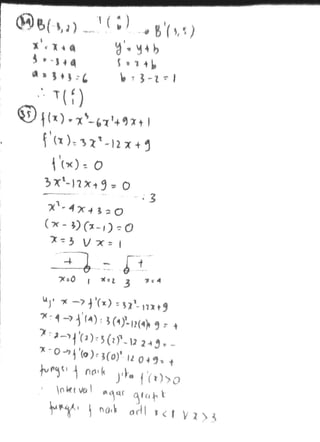 34 B(-3,2) T(a b) B'(3,3)
x' = x+a y' = y+b
3 = -3+a 3 = 2+b
a = 3+3 = 6 b = 3-2 = 1
∴ T(6 1)
35 f(x) = x³-6x²+9x+1
f'(x) = 3x²-12x+9
f'(x) = 0
3x²-12x+9 = 0
: 3
x²-4x+3 = 0
(x-3)(x-1) = 0
x = 3 V x = 1
+ - +
x=0 1 x=2 3 x=4
Uji x → f'(x) = 3x²-12x+9
x=4 → f'(4) = 3(4)²-12(4)+9 = +
x=2 → f'(2) = 3(2)²-12 2+9 = -
x=0 → f'(0) = 3(0)²-12 0+9 = +
fungsi f naik jika f'(x)>0
∴ Interval agar grafik
fungsi f naik adl x<1 V x>3